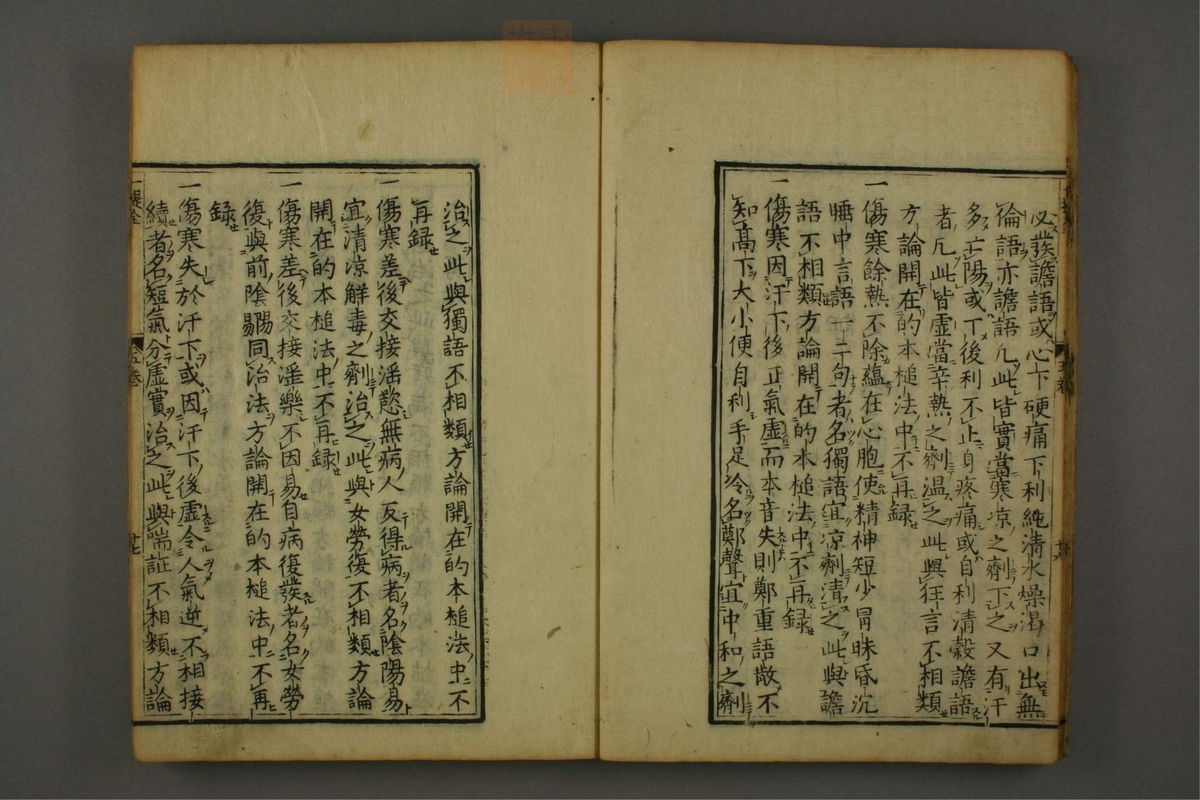 必發譫語或心下硬痛下利純清水燥渇口出無
倫語亦譫語凢此皆實當寒凉之劑下之又有汗
多亡陽或下後利不止身疼痛或自利清穀譫語
者凢此皆虛當辛熱之劑温之此與狂言不相類
方論開在的本槌法中不再録
一傷寒餘熱不除藴在心胞使精神短少冐昧昏沉
睡中言語一二句者名獨語宜凉劑清之此與譫
語不相類方論開在的本槌法中不再録
一傷寒因汗下後正氣虛而本音失則鄭重語散不
知高下大小便自利手足冷名鄭聲宜中和之劑
治之此與獨語不相類方論開在的本槌法中不
再録
一傷寒差後交接滛慾無病人反得病者名陰陽易
宜清凉解毒之劑治之此與女勞復不相類方論
開在的本槌法中不再録
一傷寒差後交接滛樂不因易自病復發者名女勞
復與前陰陽同治法方論開在的本槌法中不再
録
一傷寒失於汗下或因汗下後虛令人氣逆不相接
續者名短氣分虛實治之此與喘証不相類方論